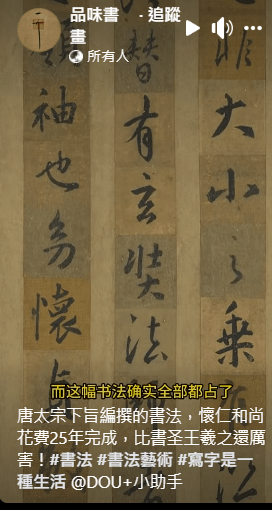 品味書畫 · 追蹤
所有人
非大小之乘
替有玄奘法
領袖也幼懷
而这幅书法确实全部都占了
唐太宗下旨編撰的書法，懷仁和尚
花費25年完成，比書圣王羲之還厲
害！#書法 #書法藝術 #寫字是一
種生活 @DOU+小助手